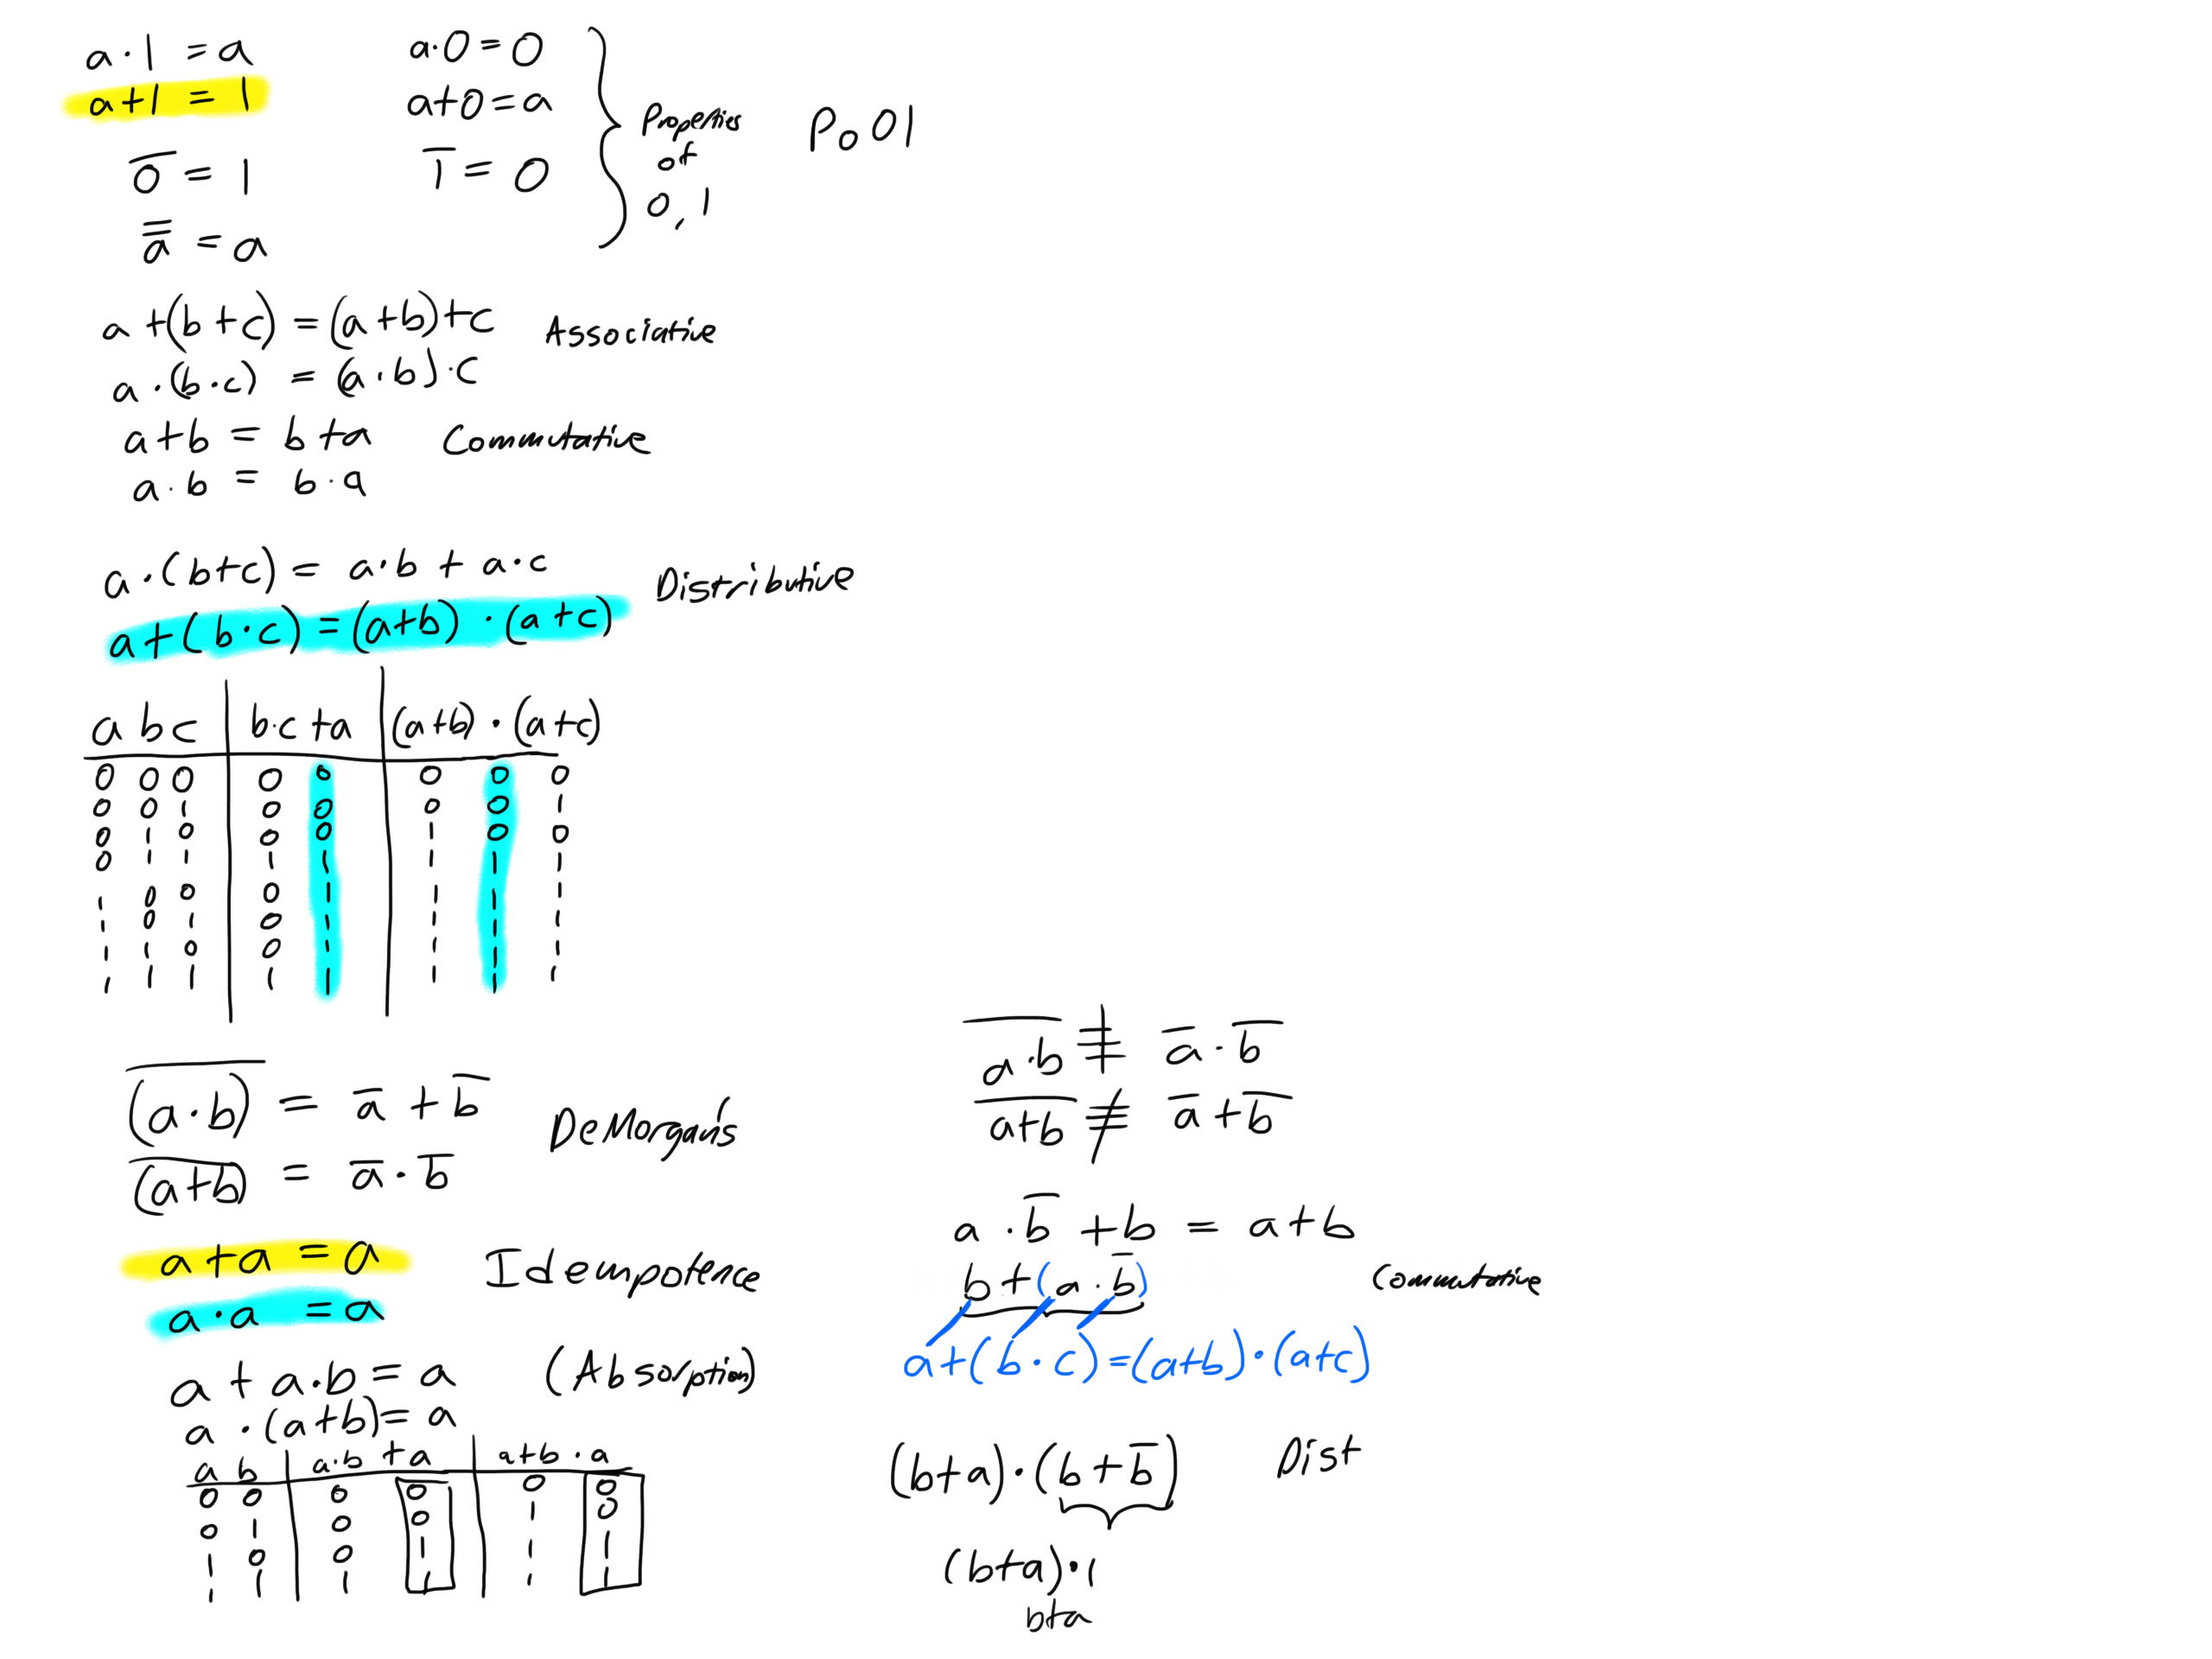 a·1 = a    a·0 = 0
a+1 = 1    a+0 = a
0̅ = 1    1̅ = 0
a̿ = a
Properties
of
0, 1
Po01
a+(b+c) = (a+b)+c    Associative
a·(b·c) = (a·b)·c
a+b = b+a    Commutative
a·b = b·a
a·(b+c) = a·b + a·c    Distributive
a+(b·c) = (a+b)·(a+c)
a b c | b·c +a | (a+b)·(a+c)
0 0 0 | 0 0 | 0 0 0
0 0 1 | 0 0 | 0 0 1
0 1 0 | 0 0 | 1 0 0
0 1 1 | 1 1 | 1 1 1
1 0 0 | 0 1 | 1 1 1
1 0 1 | 0 1 | 1 1 1
1 1 0 | 0 1 | 1 1 1
1 1 1 | 1 1 | 1 1 1
(̅a̅·̅b̅)̅ = a̅ + b̅    DeMorgan's
(̅a̅+̅b̅)̅ = a̅ · b̅
a+a = a    Idempotence
a·a = a
a + a·b = a    (Absorption)
a·(a+b) = a
a b | a·b +a | a+b · a
0 0 | 0 0 | 0 0
0 1 | 0 0 | 1 0
1 0 | 0 1 | 1 1
1 1 | 1 1 | 1 1
a̅·̅b̅ ≢ a̅ · b̅
a̅+̅b̅ ≢ a̅ + b̅
a · b̅ + b = a+b
b+(a · b̅)    Commutative
a+(b·c)=(a+b)·(a+c)
(b+a)·(b+b̅)    Dist
(b+a)·1
b+a